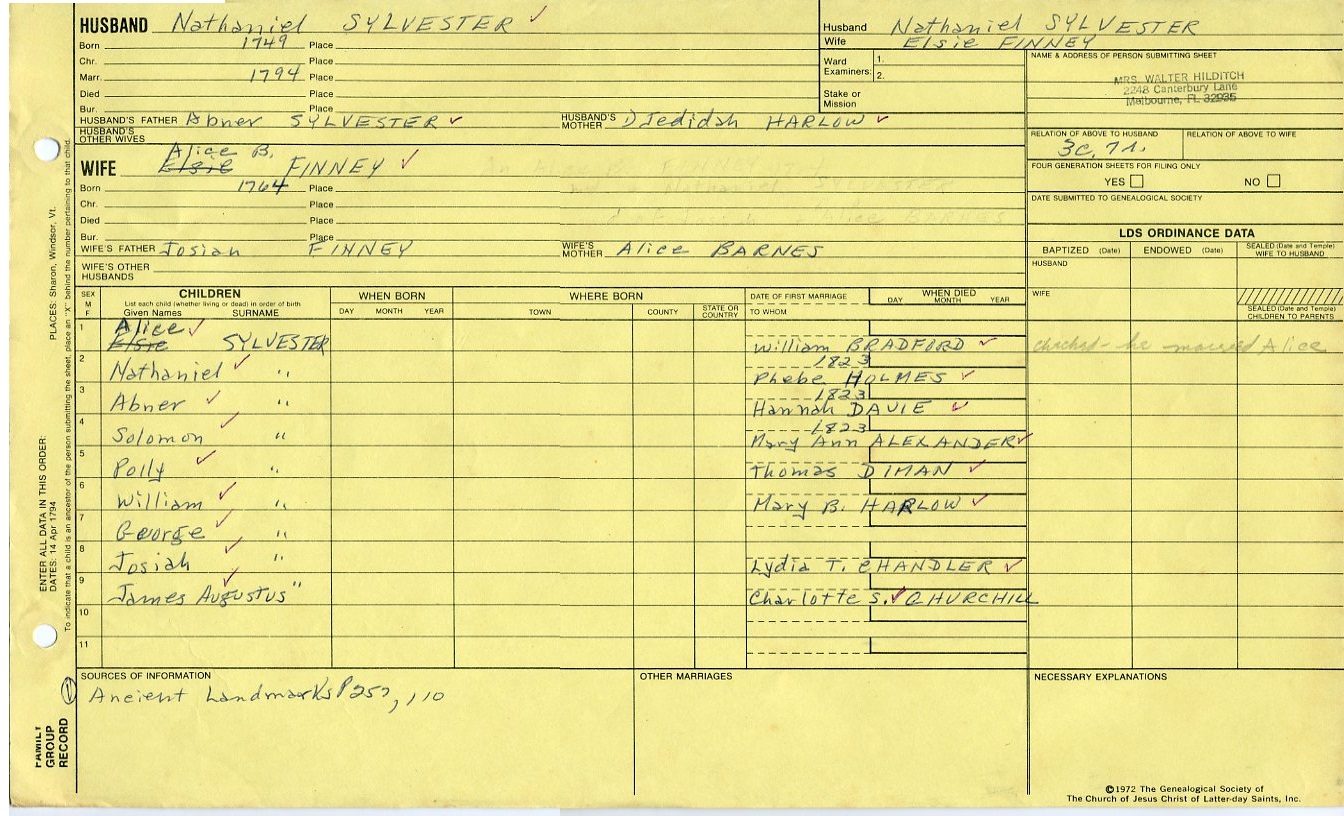 HUSBAND Nathaniel SYLVESTER
Husband Nathaniel SYLVESTER
Wife Elsie FINNEY
Born 1749 Place
Chr. Place
Marr. 1794 Place
Died Place
Bur. Place
Ward Examiners: 1.
2.
Stake or Mission
NAME & ADDRESS OF PERSON SUBMITTING SHEET
MRS. WALTER HILDITCH
2248 Canterbury Lane
Melbourne, FL 32935
HUSBAND'S FATHER Abner SYLVESTER HUSBAND'S MOTHER DJedidah HARLOW
HUSBAND'S OTHER WIVES
RELATION OF ABOVE TO HUSBAND RELATION OF ABOVE TO WIFE
Alice B.
WIFE Elsie FINNEY
Born 1764 Place
Chr. Place
Died Place
Bur. Place
FOUR GENERATION SHEETS FOR FILING ONLY
YES NO
DATE SUBMITTED TO GENEALOGICAL SOCIETY
WIFE'S FATHER Josiah FINNEY WIFE'S MOTHER Alice BARNES
WIFE'S OTHER HUSBANDS
LDS ORDINANCE DATA
BAPTIZED (Date) ENDOWED (Date) SEALED (Date and Temple) WIFE TO HUSBAND
HUSBAND
WIFE
SEALED (Date and Temple) CHILDREN TO PARENTS
SEX M F
CHILDREN
List each child (whether living or dead) in order of birth
Given Names SURNAME
WHEN BORN
DAY MONTH YEAR
WHERE BORN
TOWN COUNTY STATE OR COUNTRY
DATE OF FIRST MARRIAGE
TO WHOM
WHEN DIED
DAY MONTH YEAR
1 Alice
Elsie SYLVESTER William BRADFORD checked - he married Alice
2 1823
Nathaniel " Phebe HOLMES
3 1823
Abner " Hannah DAVIE
4 1823
Solomon " Mary Ann ALEXANDER
5
Polly " Thomas DIMAN
6
William " Mary B. HARLOW
7
George "
8
Josiah " Lydia T. CHANDLER
9
James Augustus " Charlotte S. CHURCHILL
10
11
SOURCES OF INFORMATION
Ancient Landmarks P 257, 110
OTHER MARRIAGES
NECESSARY EXPLANATIONS
©1972 The Genealogical Society of
The Church of Jesus Christ of Latter-day Saints, Inc.
FAMILY GROUP RECORD
ENTER ALL DATA IN THIS ORDER:
DATES: 14 Apr 1794
PLACES: Sharon, Windsor, Vt.
To indicate that a child is an ancestor of the person submitting the sheet, place an "X" behind the number pertaining to that child.